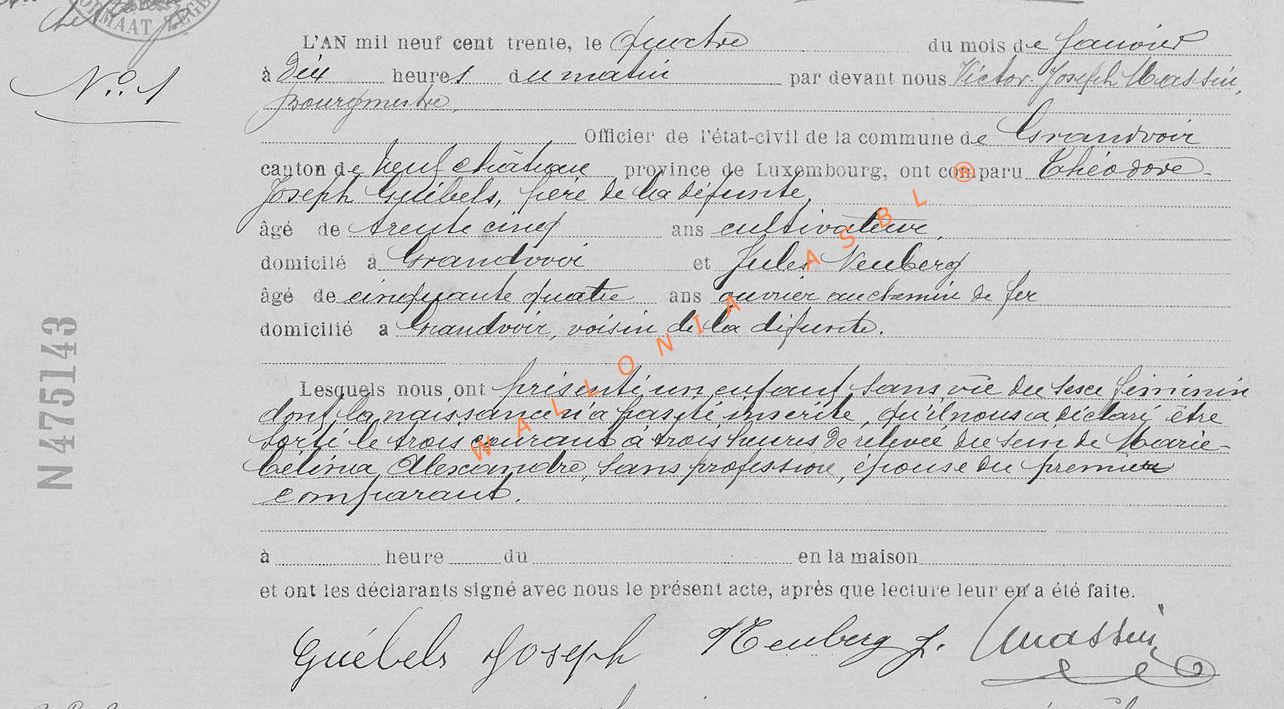 MAAT ZEGE
N° 1
L'AN mil neuf cent trente, le quatre du mois de Janvier
à Dix heures du matin par devant nous Victor Joseph Massin,
bourgmestre,
Officier de l'état-civil de la commune de Grandvoir
canton de Neufchâteau province de Luxembourg, ont comparu Théodore-
Joseph Guébels, père de la défunte,
âgé de trente cinq ans cultivateur,
domicilé à Grandvoir et Jules Neuberg
âgé de cinquante quatre ans ouvrier au chemin de fer
domicilié a Grandvoir, voisin de la défunte.
Lesquels nous ont présenté un enfant sans vie du sexe féminin
dont la naissance n'a pas été inscrite, qu'il nous a déclaré être
sorti le trois courant à trois heures de relevée du sein de Marie-
Célina Alexandre, sans profession, épouse du premier
comparant.
à heure du en la maison
et ont les déclarants signé avec nous le présent acte, après que lecture leur en a été faite.
Guébels Joseph Neuberg J. Massin
N 475143
WALLONIA ASBL ®